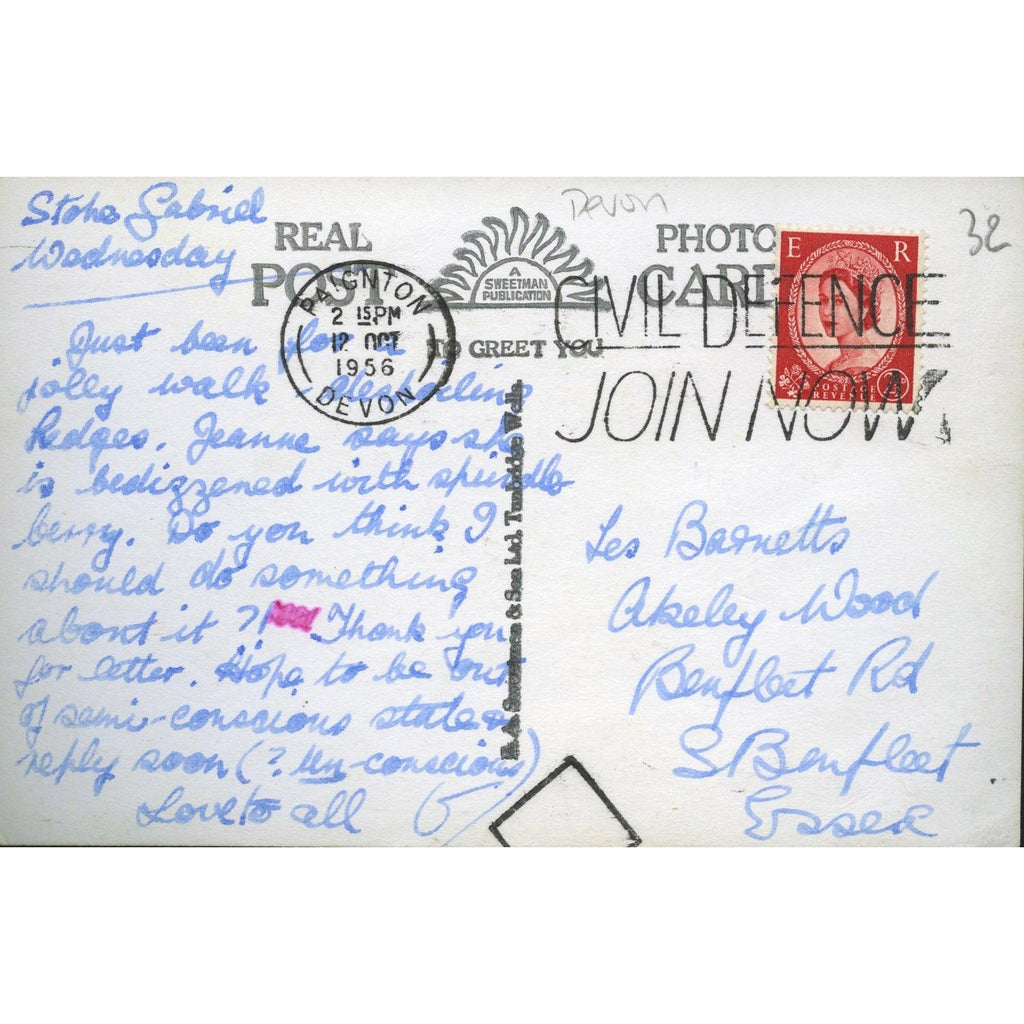 Stoke Gabriel
Wednesday
Devon
32
REAL PHOTO
POST CARD
A
SWEETMAN
PUBLICATION
TO GREET YOU
PAIGNTON
2 15 PM
12 OCT
1956
DEVON
CIVIL DEFENCE
JOIN NOW
E R
POSTAGE
REVENUE
Just been for a
jolly walk
hedges. Jeanne says she
is bedizzened with spindle
berry. Do you think I
should do something
about it ?! Thank you
for letter. Hope to be out
of semi-conscious state &
reply soon (? Un-conscious)
Love to all
& Son Ltd. Tunbridge Wells.
Les Barnetts
Akeley Wood
Benfleet Rd
S Benfleet
Essex